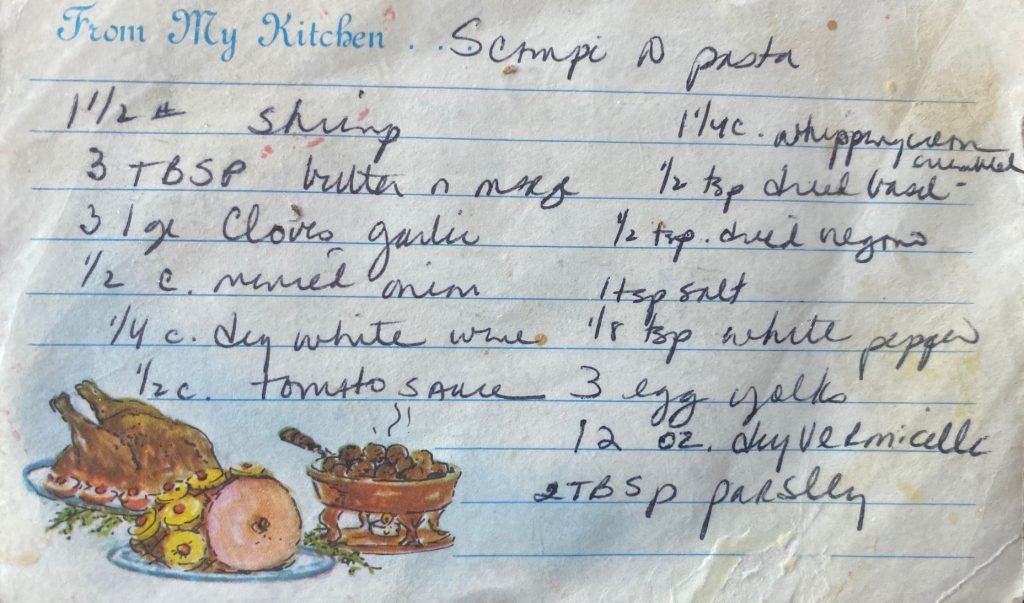 From My Kitchen . . . Scampi pasta
1 1/2 # shrimp
3 TBSP butter or marg
3 lge Cloves garlic
1/2 c. minced onion
1/4 c. dry white wine
1/2 c. tomato sauce
1 1/4 c. whipping cream
crumbled
1/2 tsp dried basil
1/2 tsp. dried oregano
1 tsp salt
1/8 tsp white pepper
3 egg yolks
12 oz. dry vermicelli
2 TBSP parslley